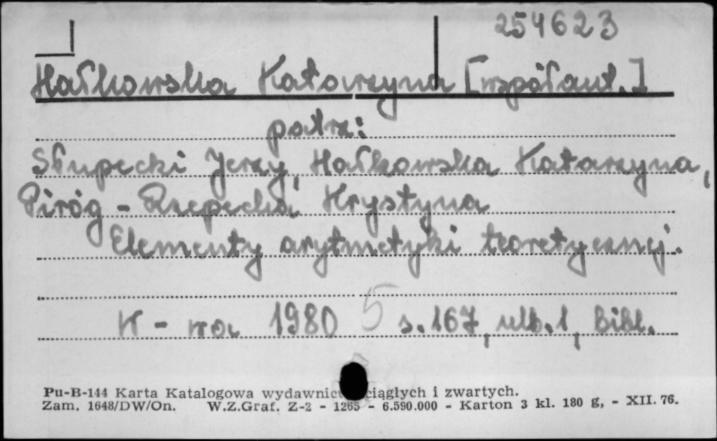 254623
Hałkowska Katarzyna [współaut.]
patrz:
Słupecki Jerzy, Hałkowska Katarzyna,
Piróg-Rzepecka Krystyna
Elementy arytmetyki teoretycznej.
W-wa 1980 5 s.167, nlb.1, Bibl.
Pu-B-144 Karta Katalogowa wydawnict ciągłych i zwartych.
Zam. 1648/DW/On. W.Z.Graf. Z-2 - 1265 - 6.590.000 - Karton 3 kl. 180 g, - XII. 76.